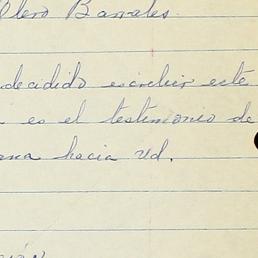 Otero Barrales.
decidido escribir este
es el testimonio de
hacia Vd.